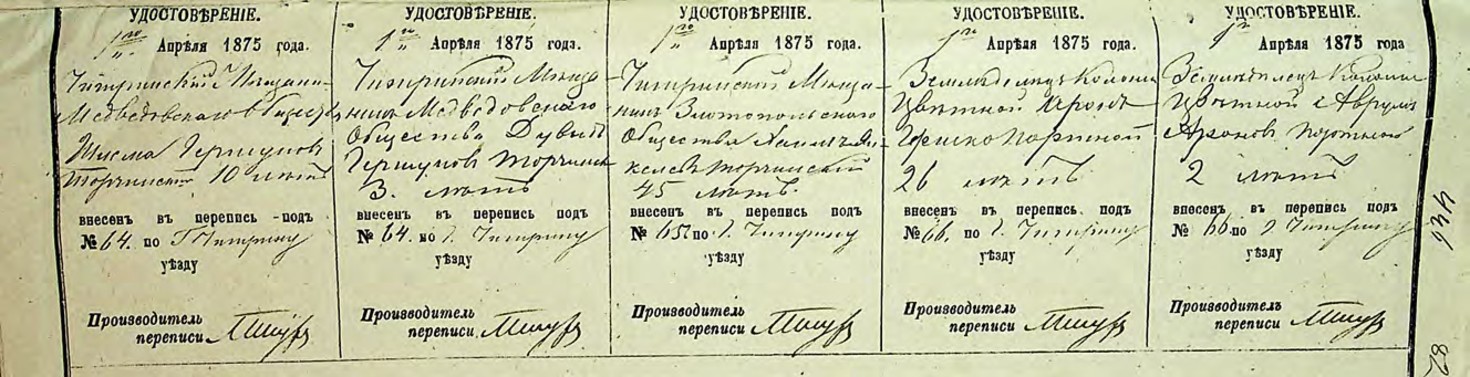 УДОСТОВѢРЕНІЕ.
1го Апрѣля 1875 года.
Чигиринскій Мѣщанинъ
Медведовскаго Общества
Шлема Гершуновъ
Торчинскій 10 лѣтъ
внесенъ въ перепись подъ
№ 64. по Г. Чигирину
уѣзду
Производитель
переписи
УДОСТОВѢРЕНІЕ.
1го Апрѣля 1875 года.
Чигиринскій Мѣща-
нинъ Медведовскаго
Общества Дувидъ
Гершуновъ Торчинскій
3. лѣтъ
внесенъ въ перепись подъ
№ 64. по г. Чигирину
уѣзду
Производитель
переписи
УДОСТОВѢРЕНІЕ.
1го Апрѣля 1875 года.
Чигиринскій Мѣща-
нинъ Златопольскаго
Общества
Торчинскій
45 лѣтъ.
внесенъ въ перепись подъ
№ 65. по г. Чигирину
уѣзду
Производитель
переписи
УДОСТОВѢРЕНІЕ.
1го Апрѣля 1875 года.
Земледѣлецъ Колоніи
Цвѣтной
Портной
26 лѣтъ
внесенъ въ перепись подъ
№ 66. по г. Чигирину
уѣзду
Производитель
переписи
УДОСТОВѢРЕНІЕ.
1го Апрѣля 1875 года
Земледѣлецъ Колоніи
Цвѣтной Аврумъ
Ароновъ Портной
2 лѣтъ
внесенъ въ перепись подъ
№ 66. по г. Чигирину
уѣзду
Производитель
переписи